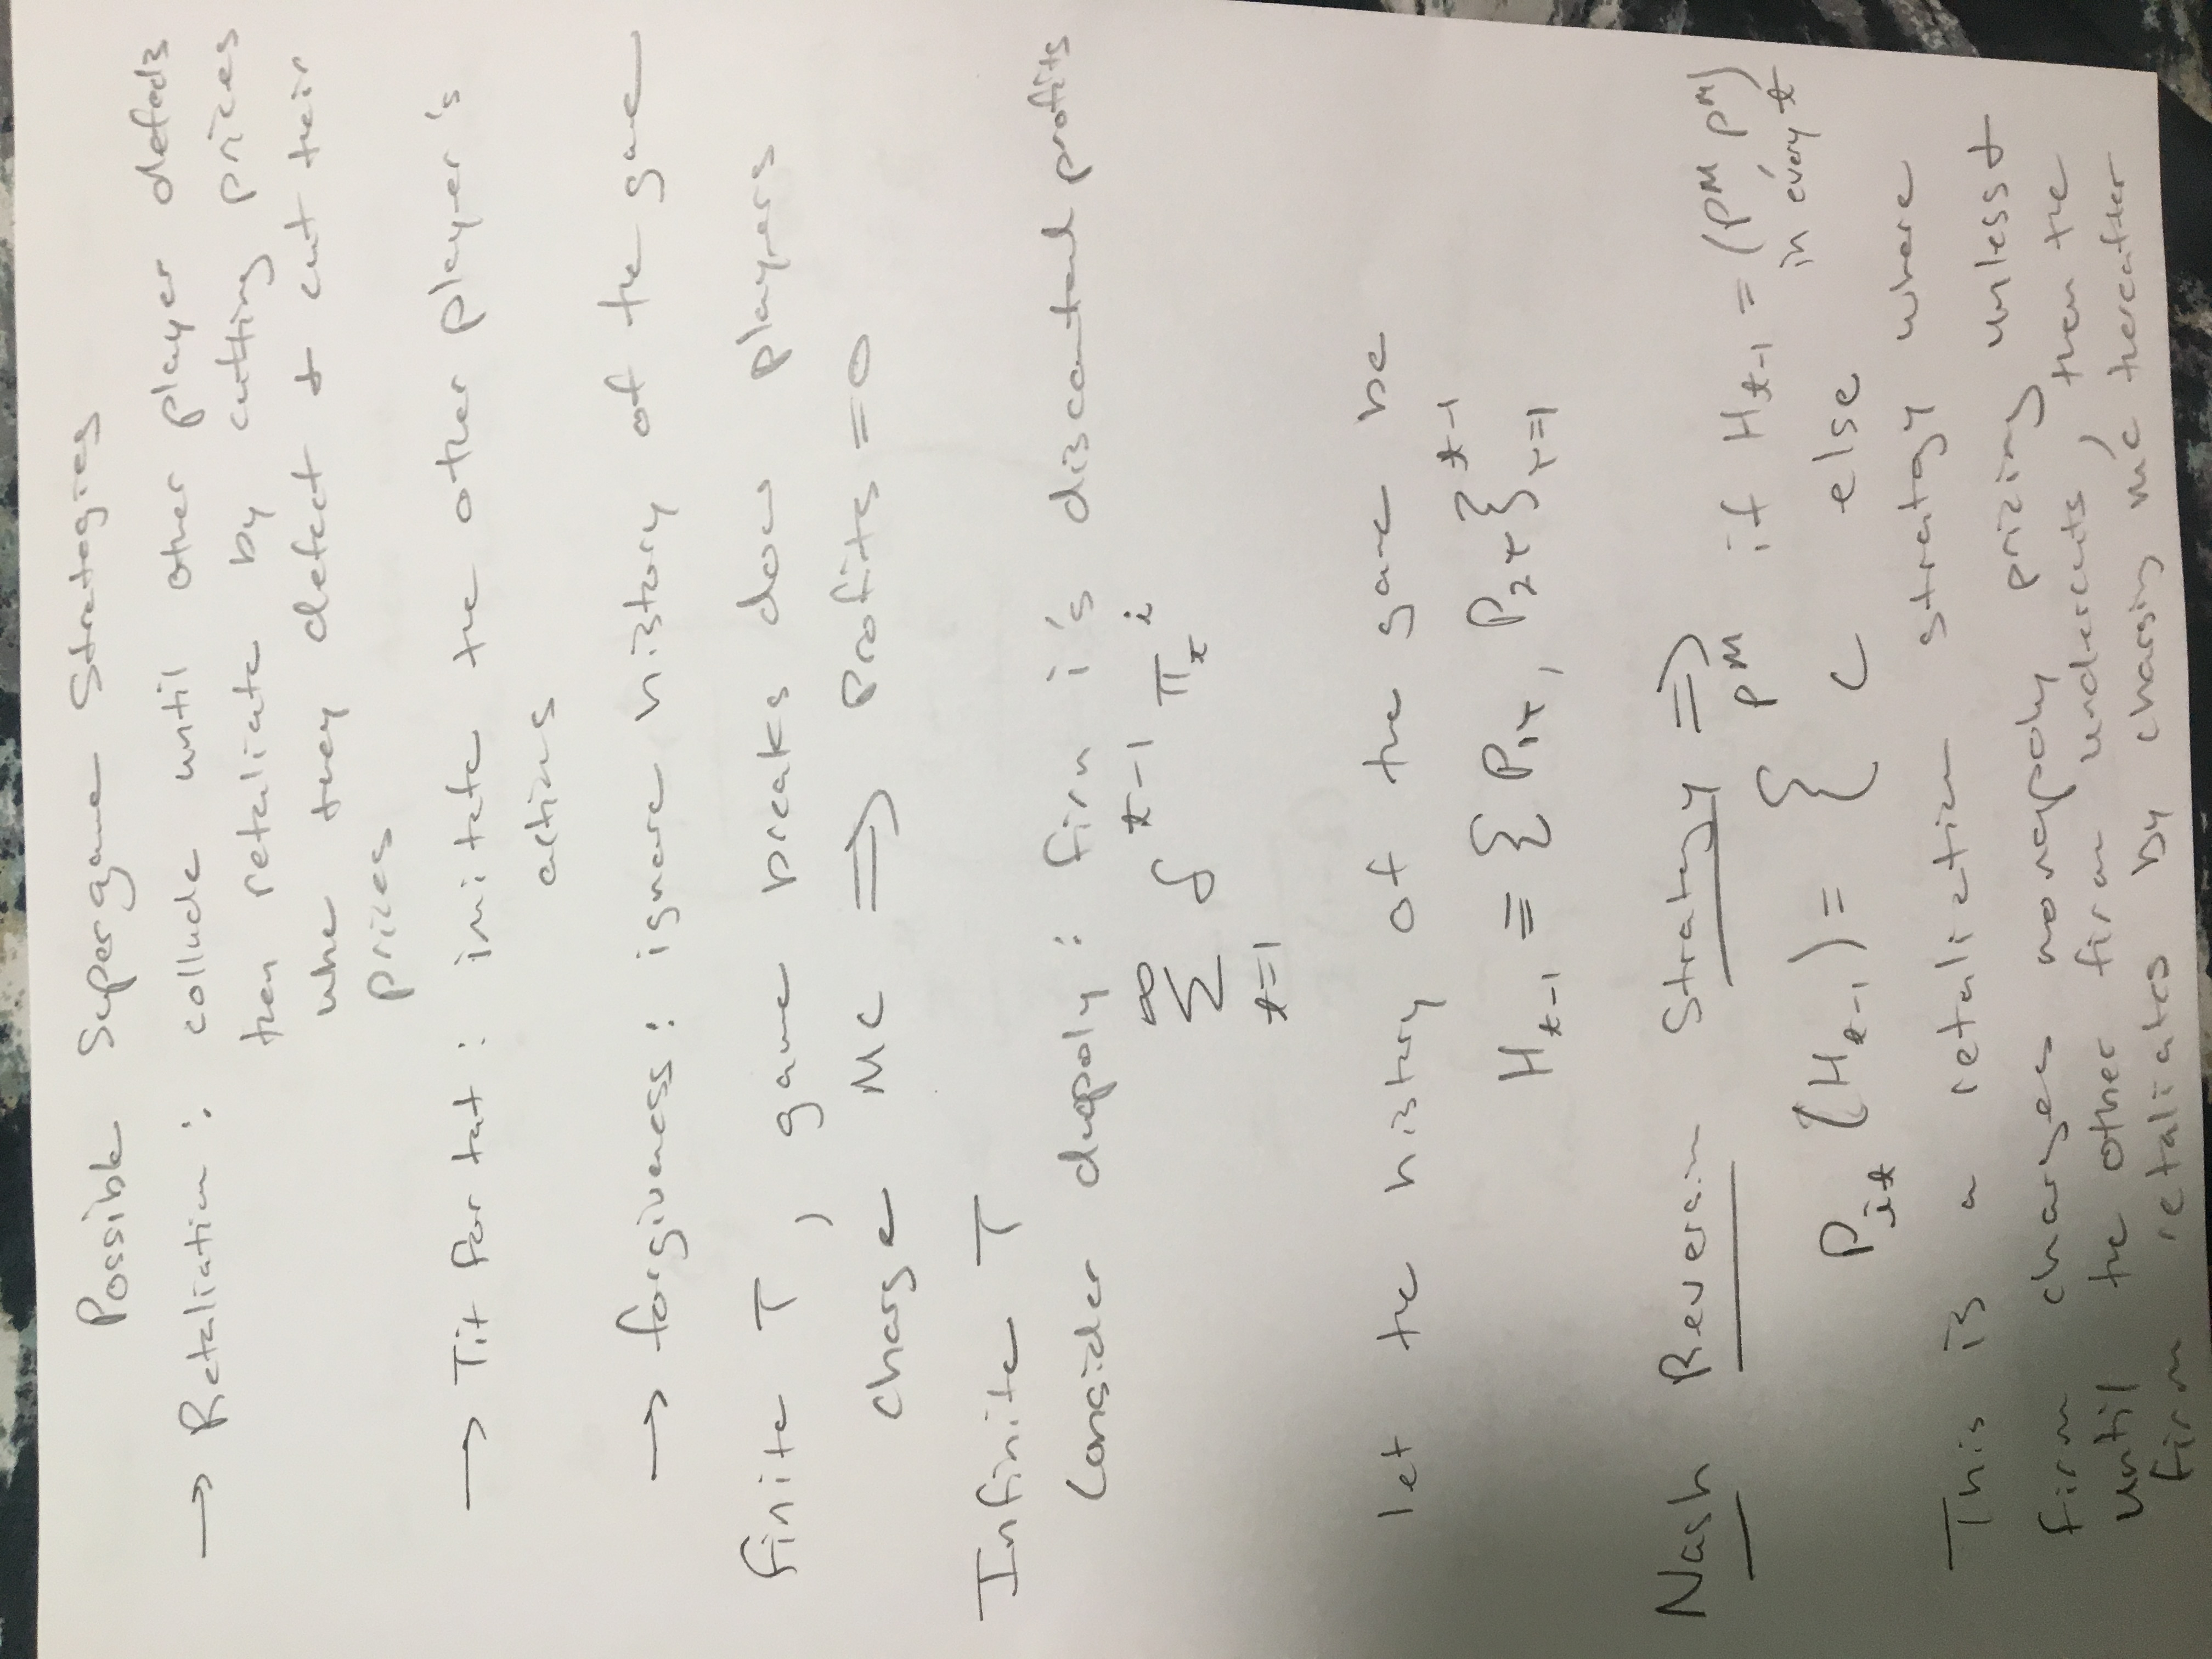 Possible Supergame Strategies
→ Retaliation : collude until other player defects
then retaliate by cutting prices
whe they defect & cut their
prices
→ Tit for tat : imitate the other player's
actions
→ forgiveness : ignore history of the game
finite T , game breaks down players
charge MC ⟹ Profits = 0
Infinite T
Consider duopoly : firm i's discounted profits
∞
Σ δ^{t-1} π_t^i
t=1
let the history of the game be
H_{t-1} ≡ { P_{1τ} , P_{2τ} }_{τ=1}^{t-1}
Nash Reversion Strategy ⟹
P^M if H_{t-1} = (P^M, P^M)
in every t
P_{it} (H_{t-1}) = { c else
This is a retaliation strategy where
firm charges monopoly pricing unless &
until the other firm undercuts , then the
firm retaliates by charging mc thereafter